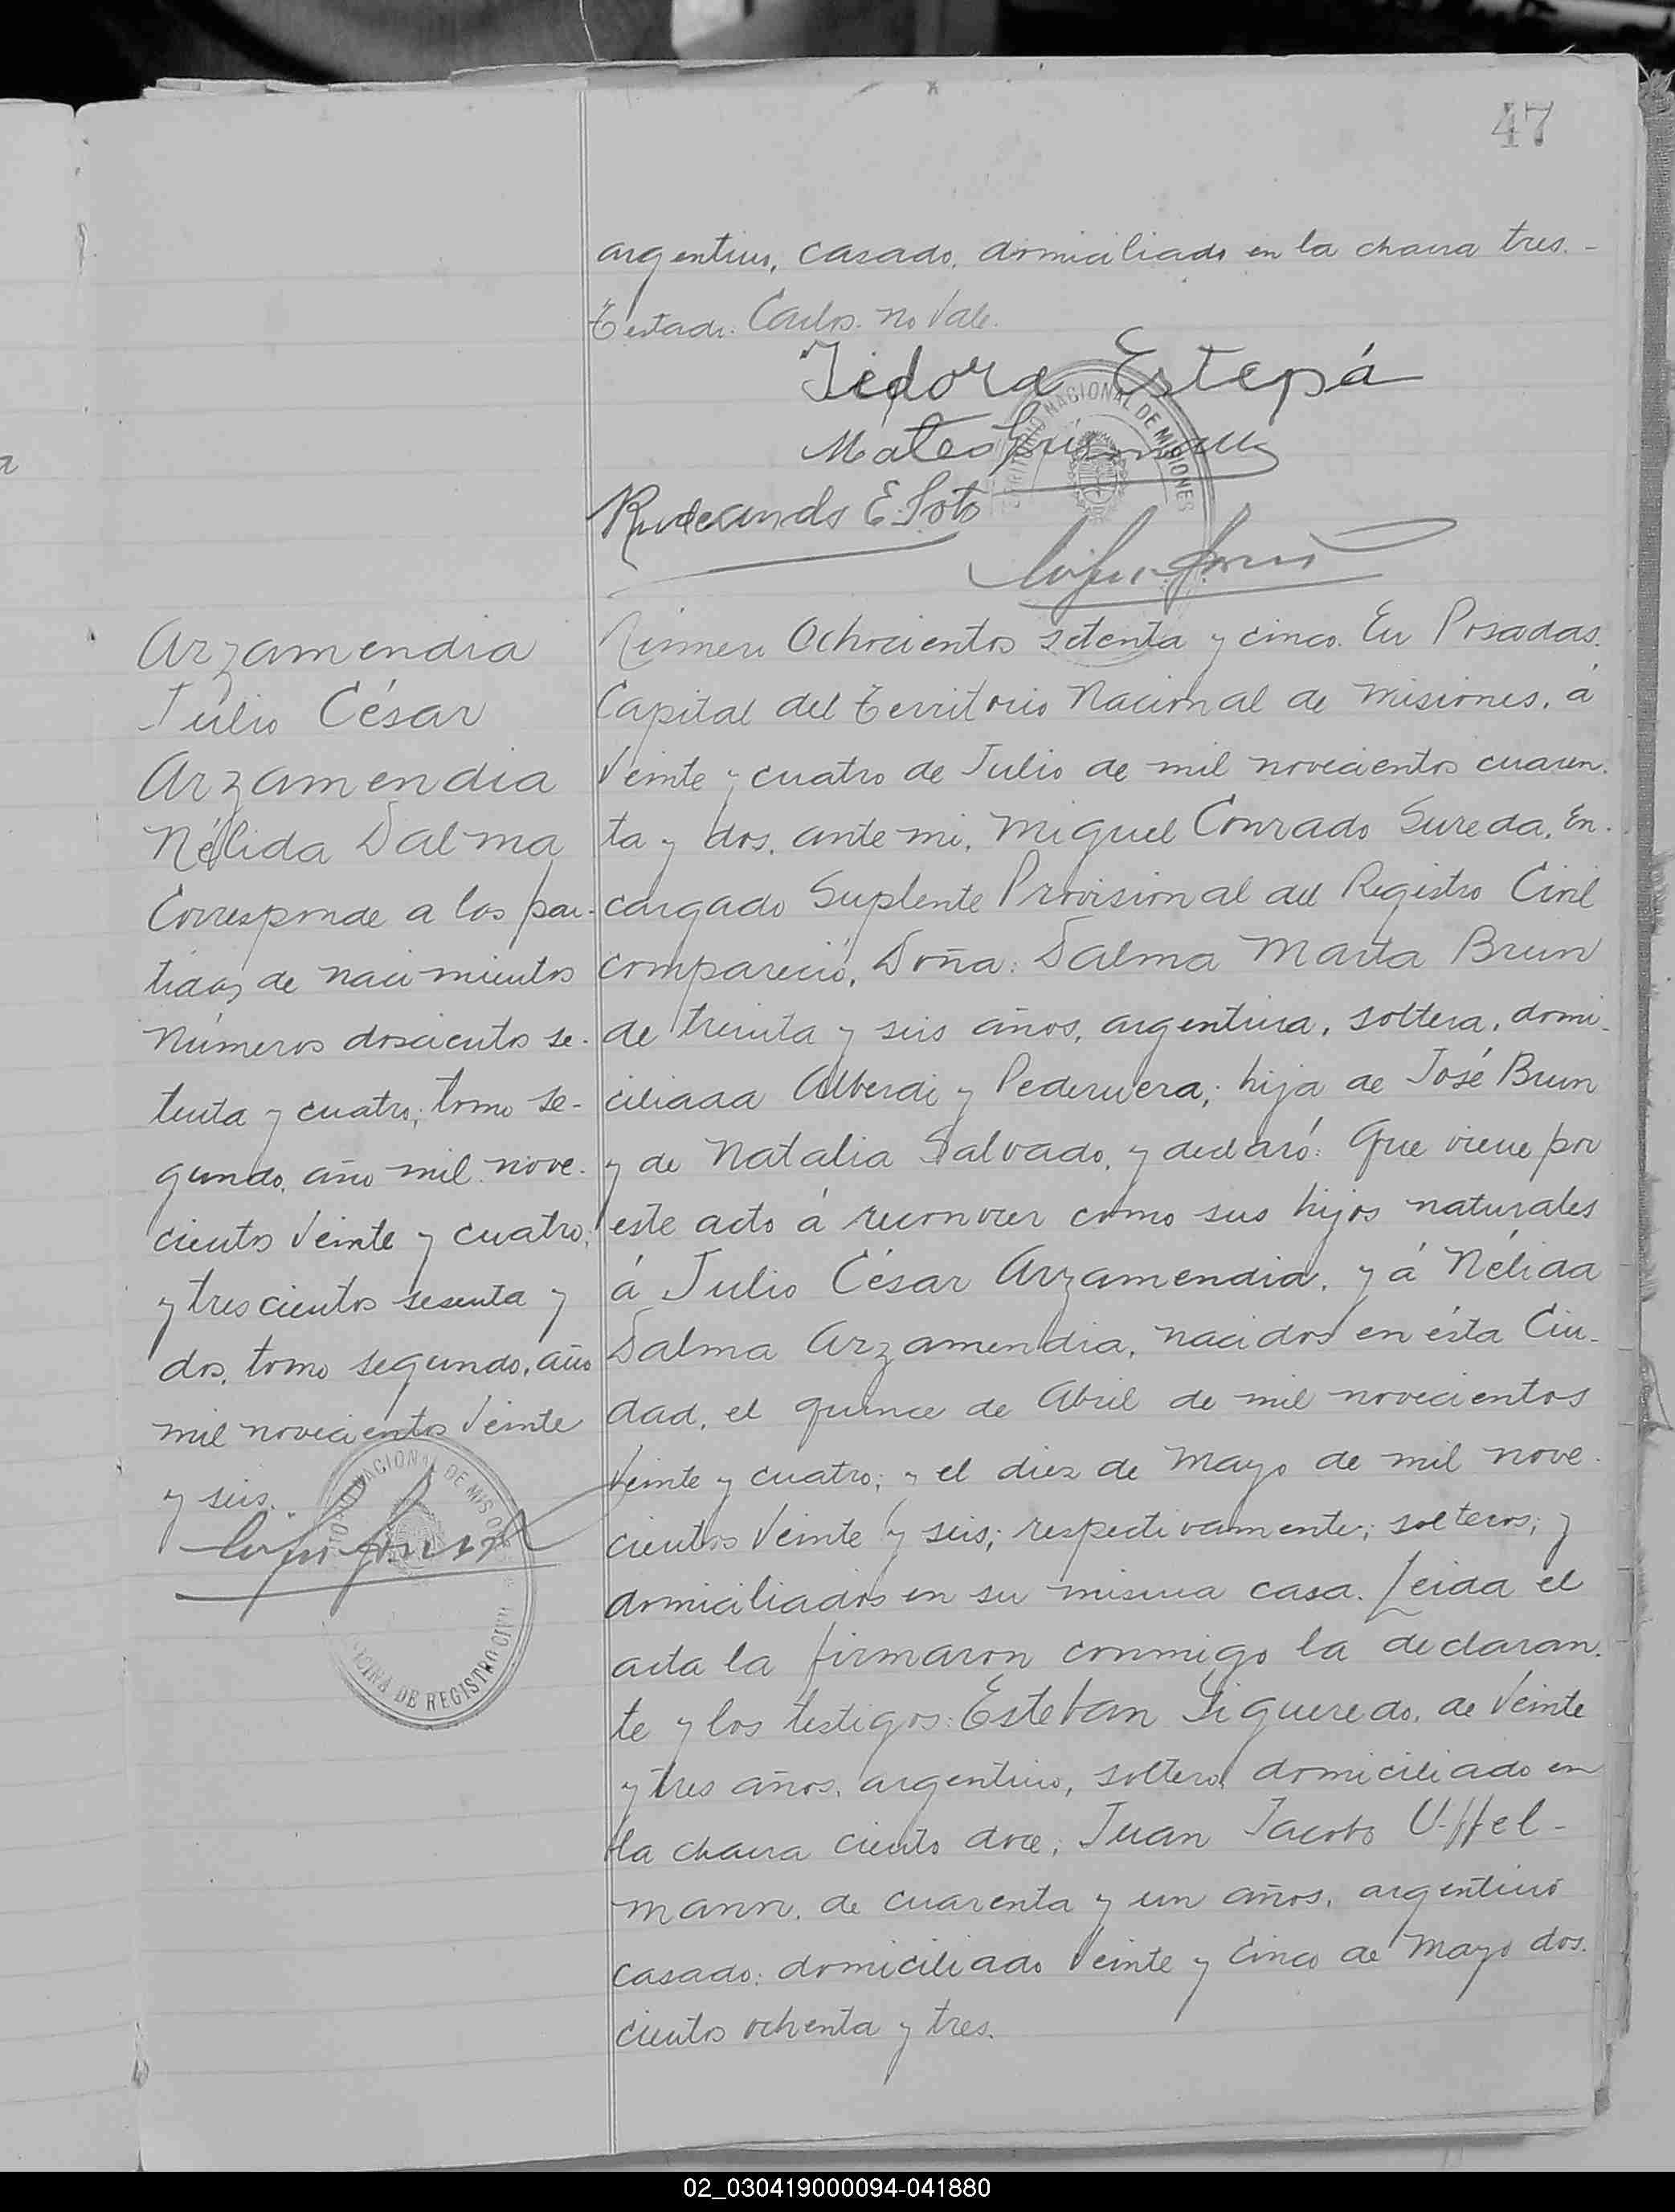 47
argentino, casado, domiciliado en la chacra tres.-
Testado: Carlos. no Vale.
Isidora Estepá
Mateo
TERRITORIO NACIONAL DE MISIONES
Rudecindo E. Soto
Arzamendia
Julio César
Arzamendia
Nélida Dalma
Corresponde a las par-
tidas de nacimientos
números doscientos se-
tenta y cuatro; tomo se-
gundo, año mil nove-
cientos veinte y cuatro;
y trescientos sesenta y
dos, tomo segundo, año
mil novecientos veinte
y seis.
NACIONAL DE MISIONES
OFICINA DE REGISTRO CIVIL
Número Ochocientos setenta y cinco. En Posadas.
Capital del Territorio Nacional de Misiones, á
veinte y cuatro de Julio de mil novecientos cuaren-
ta y dos, ante mi, Miguel Conrado Sureda, En-
cargado Suplente Provisional del Registro Civil
compareció, Doña: Dalma Marta Brun
de treinta y seis años, argentina, soltera, domi-
ciliada Alberdi y Pedernera; hija de José Brun
y de Natalia Salvado, y declaró: Que viene por
este acto á reconocer como sus hijos naturales
á Julio César Arzamendia, y á Nélida
Dalma Arzamendia, nacidos en ésta Ciu-
dad, el quince de Abril de mil novecientos
veinte y cuatro; y el diez de Mayo de mil nove-
cientos veinte y seis; respectivamente; solteros; y
domiciliados en su misma casa. Leida el
acta la firmaron conmigo la declaran-
te y los testigos: Esteban Figueredo, de veinte
y tres años, argentino, soltero, domiciliado en
la chacra ciento doce; Juan Jacobo Uffel-
mann, de cuarenta y un años, argentino
casado: domiciliado Veinte y Cinco de Mayo dos-
cientos ochenta y tres.
02_030419000094-041880